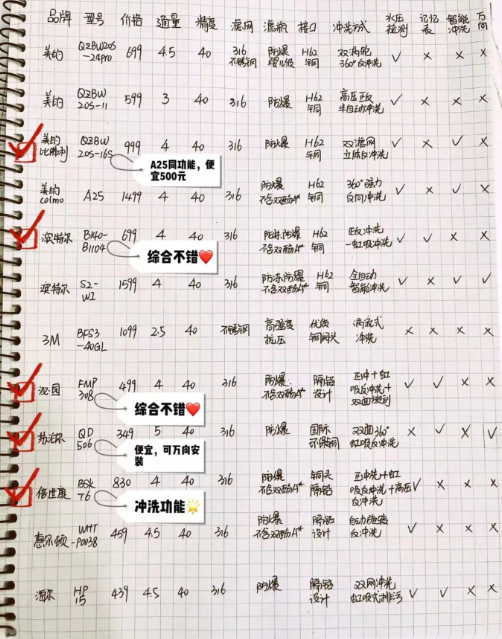 品牌 型号 价格 通量 精度 滤网 滤瓶 接口 冲洗方式 水压检测 记忆表 智能冲洗 万向
美的 QZBW20S-24pro 699 4.5 40 316不锈钢 防爆 H62铜 双涡轮360°反冲洗 ✓ × × ×
美的 QZBW20S-11 599 3 40 316 防爆 H62铜 高压正反半自动冲洗 ✓ × × ×
美的比佛利 QZBW20S-16S 999 4 40 316 防爆 H62铜 双滤网立体反冲洗 ✓ × ✓ ×
A25同功能,便宜500元
美的colmo A25 1499 4 40 316 防爆不含双酚A* H62铜 360°强力反向冲洗 ✓ × ✓ ×
滨特尔 B140-B1104 699 4 40 316 防冻.防爆不含双酚A* H62铜 正反冲洗虹吸冲洗 ✓ ✓ × ×
综合不错❤
滨特尔 S2-W1 1599 4 40 316 防冻.防爆不含双酚A* H62铜 全自动智能冲洗 ✓ × ✓ ✓
3M BFS3-40GL 1099 2.5 40 不锈钢 高强度抗压 优质铜 涡流式冲洗 × × × ×
沁园 FMP308 499 4 40 316 防爆.不含双酚A* 隔铅设计 正冲+虹吸反冲洗+双面 ✓ ✓ × ×
综合不错❤
QD506 349 5 40 316 防爆 国际不锈钢 双面360°虹吸反冲洗 ✓ × × ✓
便宜,可万向安装
倍世 BSKT6 830 4 40 316 防爆不含双酚A* 铜头隔铅 正冲洗+虹吸反冲洗+高压反冲洗 ✓ ✓ × ×
冲洗功能🌟
惠而浦 WHTP0038 459 4.5 40 316 防爆不含双酚A* 隔铅设计 自动旋转反冲洗 ✓ × × ×
海尔 HP15 439 4.5 40 316 防爆 隔铅设计 双网冲洗虹吸式排污 ✓ ✓ × ×